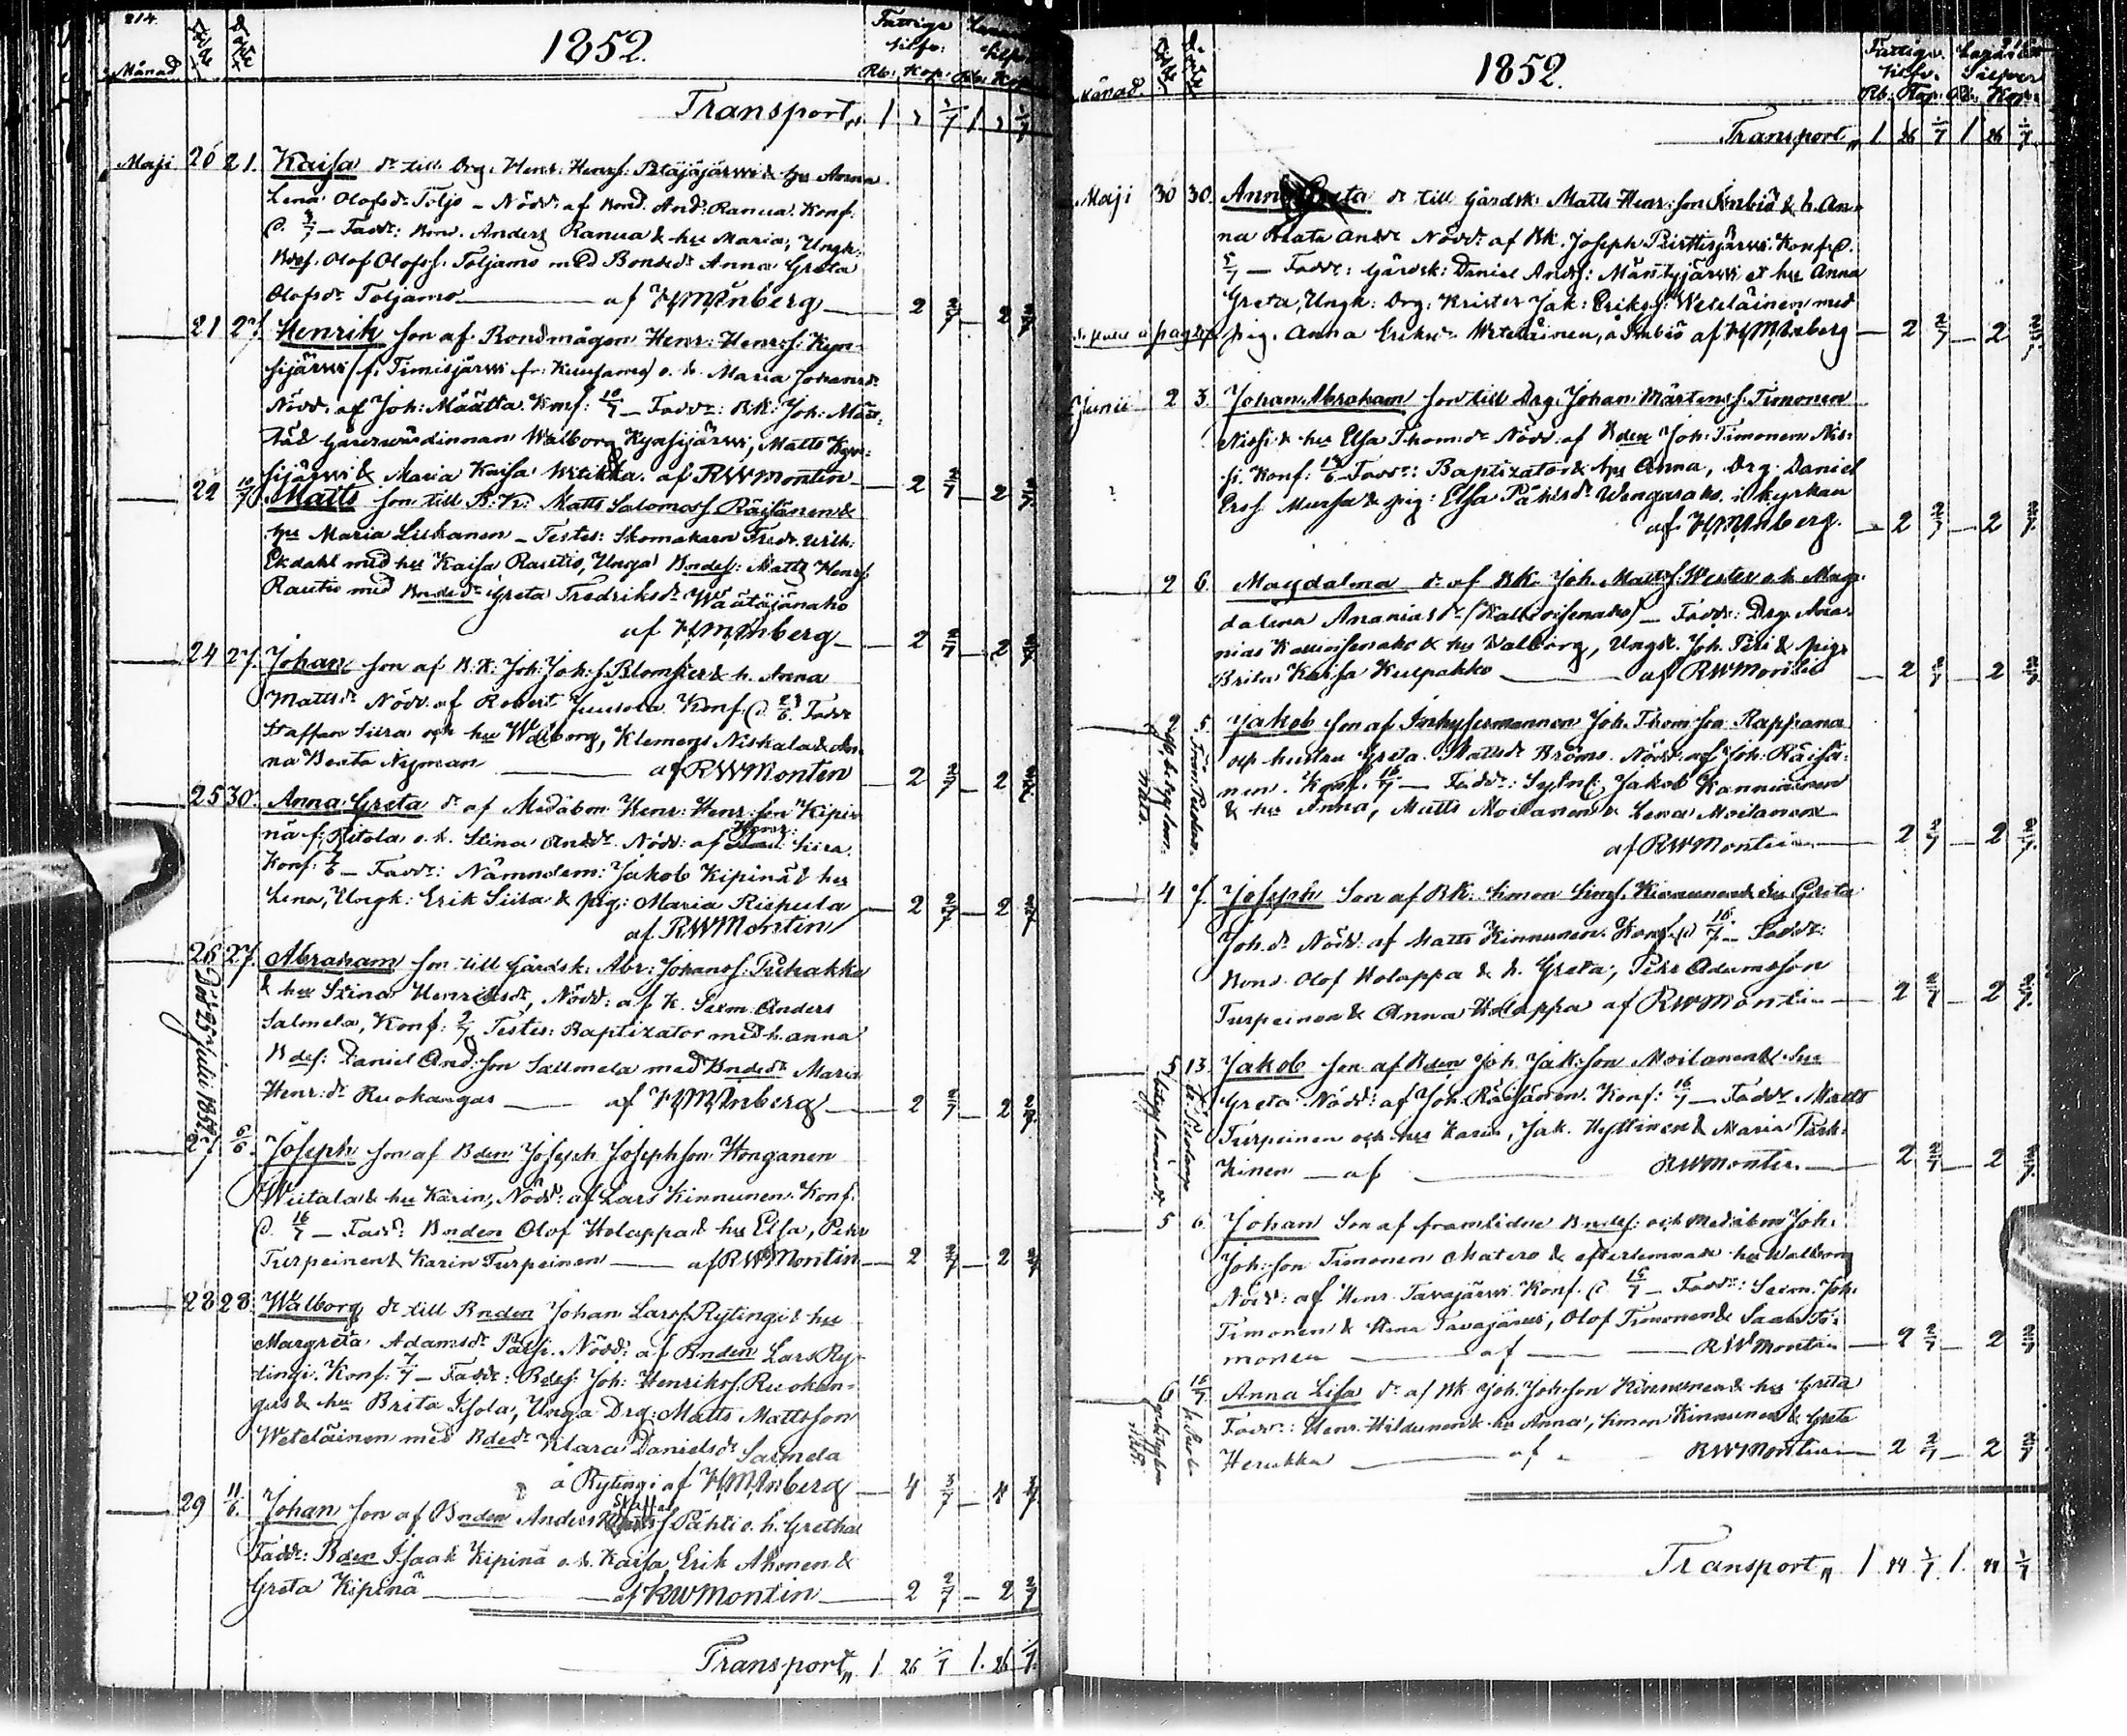 214.
Månad
1852.
Fattiga Silfv:
Rb: Kop: Rb: Kop
Transport 1 1/7 1 1/7
Maji 20 21. Kaisa dr till Drg. Henr: Henrs: & hu Anna
Lena Olofsdr Toljo – Nödd: af Bond. And: Ranua. Konf.
d. 3/7 – Fadd: Bond. Anders Ranua & hu Maria, Ungk:
Bdes. Olof Olofss. Toljamo med Bondedr Anna Greta
Olofsdr Toljamo af HMInberg 2 2/7 2 2/7
21 27. Henrik son af Bondmågen Henr: Henrss: Kyn-
sijärwi (f. Timisjärwi fr: Kuusamo) o. h. Maria Johansdr
Nödd. af Joh: Määtta. Konf: 10/7 – Fadd: BK: Joh: Määt-
tä& Gårdswärdinnan Walborg Kynsijärwi, Matts Kyn-
sijärwi & Maria Kaisa af RWMontin 2 2/7 2 2/7
22 10/7 Matts son till B:K: Matts Salomonss Räisänen &
hu Maria Liekanen – Testes: Skomakarn Fredr. Wilh:
Ekdahl med hu Kaisa Rautio, Unga Bndes: Matts Henrss
Rautio med Bndedr Greta Fredriksdr Wäätäjänaho
af HMInberg 2 2/7 2 2/7
24 27. Johan son af B.K: Joh: Joh:s. Blomster & h. Anna
Mattsdr Nödd. af Robert Juusola. Konf. d. 29/6. Fadd
Staffan Siira och hu Walborg, Klemens Niskala & An-
na Beata Nyman af RWMontin 2 2/7 2 2/7
25 30. Anna Greta dr af Medåbon Henr: Henr:son Kipi-
nä f: Ritola o. h. Stina Andr Nödd: af Henr: Siira.
Konf: – Fadd: Nämndem: Jakob Kipinä & hu
Lena, Ungk: Erik Siira & pig: Maria Riepula
af RWMontin 2 2/7 2 2/7
26 27. Abraham son till Gårdsk: Abr: Johanss: Puhakka
& hu Stina Henriksdr, Nödd: af K. Sexm. Anders
Salmela, Konf: 2/7 Testes: Baptizator med h. Anna
Bdes: Daniel And:son Sallmela med Bndedr Maria
Henr:dr Ruokangas af HMInberg 2 2/7 2 2/7
Död 25 Juli 1852
27 6/6 Joseph son af Bden Joseph Josephson Honganen
Wiitala & hu Karin, Nödd: af Lars Kinnunen. Konf:
d. 16/7 – Fadd: Bnden Olof Holappa & hu Elsa, Pehr
Turpeinen & Karin Turpeinen af RWMontin 2 2/7 2 2/7
28 28. Walborg dr till Bnden Johan Larss. Rytingi & hu
Margreta Adamsdr Nödd: af Bnden Lars Ry-
tingi. Konf: 7/7 – Fadd: Bdes: Joh: Henrikss: Ruokan-
gas & hu Brita Isola, Unga Drg: Matts Mattsson
Weteläinen med Bdedr Klara Danielsdr Salmela
å Rytingi af HMInberg 4 4/7 4 4/7
29 11/6. Johan son af Bnden Anders Pähti o. h. Gretha
Fadd: Bden Isaak Kipinä o. h. Kaisa, Erik Ahonen &
Greta Kipinä af RWMontin 2 2/7 2 2/7
Transport 1. 26 1/7 1. 26 1/7
Månad.
1852.
Fattiga Silfv. Silfver
Rb: Kop: Rb: Kop:
Transport 1. 26 1/7 1 26 1/7
Maji 30 30. Anna Greta dr till Gårdsk: Matts Henr:son Imbiö & h. An-
na Beata Andr Nödd: af BK. Joseph Konf. d.
5/7 – Fadd: Gårdsk: Daniel Andss: Mäntyjärwi et hu Anna
Greta, Ungk: Drg: Krister Jak: Erikss: Weteläinen med
pig. Anna Eriksdr Weteläinen, å Imbiö af HMInberg 2 2/7 2 2/7
Junii 2 3. Johan Abraham son till Drg. Johan Mårtenss. Timonen
Nissi & hu Elsa Thom:dr Nödd. af Bden Joh: Timonen Nis-
si. Konf: – Fadd: Baptizator & hu Anna, Drg. Daniel
Erss Mursu & pig: Elsa Pähtsdr Wengasaho i kyrkan
af HMInberg. 2 2/7 2 2/7
2 6. Magdalena dr af BK. Joh. Mattss. Wester o. h. Mag-
dalena Ananiasdr (Kallioisenaho) – Fadd: Drg. Ana-
nias Kallioisenaho & hu Walborg, Ungk. Joh. Piri & pig:
Brita Kaisa Kulpakko af RWMontin 2 2/7 2 2/7
2 5. Jakob son af Inhysesmannen Joh. Thom:son Rappana
och hustru Greta Mattsdr Broms. Nödd. af Joh. Räisä-
nen. Konf. 16/7 – Fadd: Jakob Kanniainen
& hu Anna, Matts Moilanen & Lena Moilanen
af RWMontin 2 2/7 2 2/7
4 7. Joseph Son af BK. Simon Sims. Kinnunen & hu Greta
Joh.dr Nödd: af Matts Kinnunen. Konf. d. 16/7 – Fadd:
Bond. Olof Holappa & h. Greta, Pehr Adamsson
Turpeinen & Anna Holappa af RWMontin 2 2/7 2 2/7
5 13. Jakob son af Bden Joh. Jak:son Moilanen & hu
Greta. Nödd: af Joh. Räisänen. Konf: 16/7 – Fadd: Matts
Turpeinen och hu Karin, Jak. Hyttinen & Maria Park-
kinen – af RWMontin 2 2/7 2 2/7
5 6. Johan Son af framlidne Bndes: och Medåbon Joh.
Joh:son Timonen Matero & efterlemnade hu Walborg
Nödd: af Henr Tavajärwi. Konf. d. 15/7 – Fadd: Sexm. Joh.
Timonen & Stina Tavajärwi, Olof Timonen & Ti-
monen af RWMontin 2 2/7 2 2/7
6 16/7 Anna Lisa dr af BK Joh. Joh:son Kinnunen & hu Greta
Fadd: Henr. Hildunen & hu Anna, Simon Kinnunen & Greta
Herukka af RWMontin 2 2/7 2 2/7
Transport 1 44 1/7 1. 44 1/7